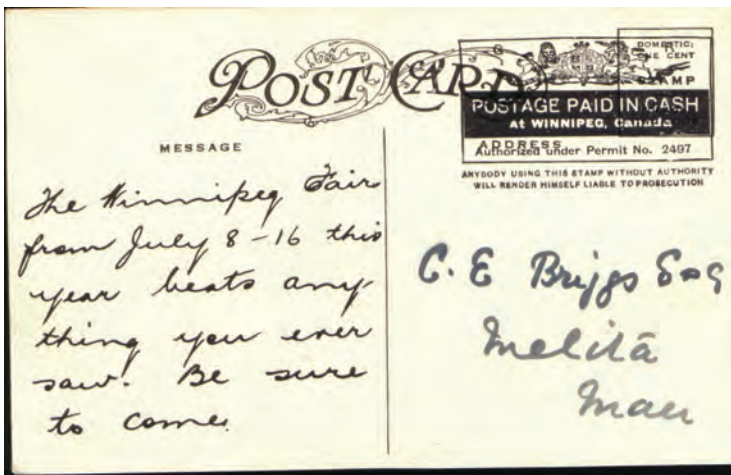 POST CARD
DOMESTIC:
ONE CENT
STAMP
POSTAGE PAID IN CASH
AT WINNIPEG, Canada
ADDRESS
Authorized under Permit No. 2497
ANYBODY USING THIS STAMP WITHOUT AUTHORITY
WILL RENDER HIMSELF LIABLE TO PROSECUTION
MESSAGE
The Winnipeg Fair
from July 8-16 this
year beats any-
thing you ever
saw. Be sure
to come.
C. E Briggs Esq
Melita
Man